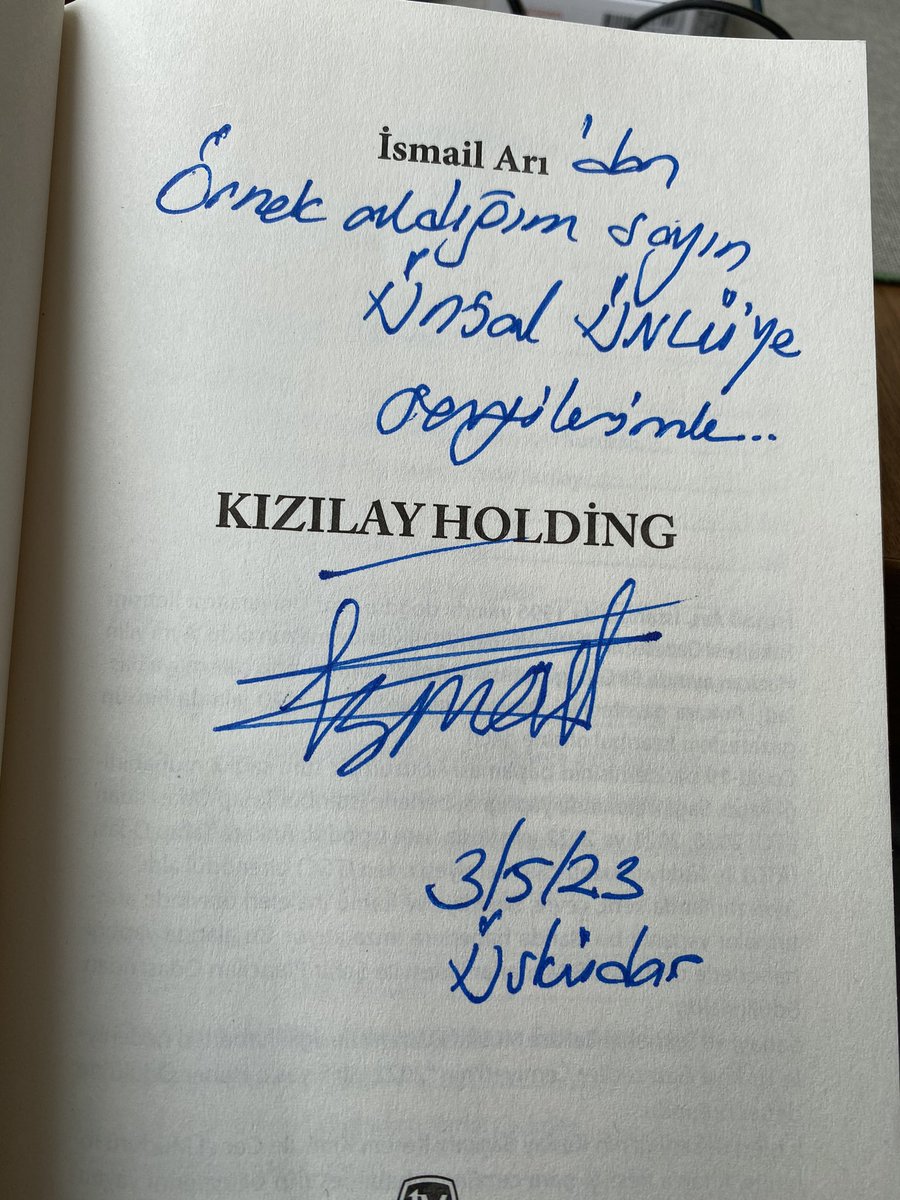 İsmail Arı'dan
Örnek aldığım sayın
Ünsal ÜNLÜ'ye
sevgilerimle...
KIZILAY HOLDİNG
İsmail
3/5/23
Üsküdar